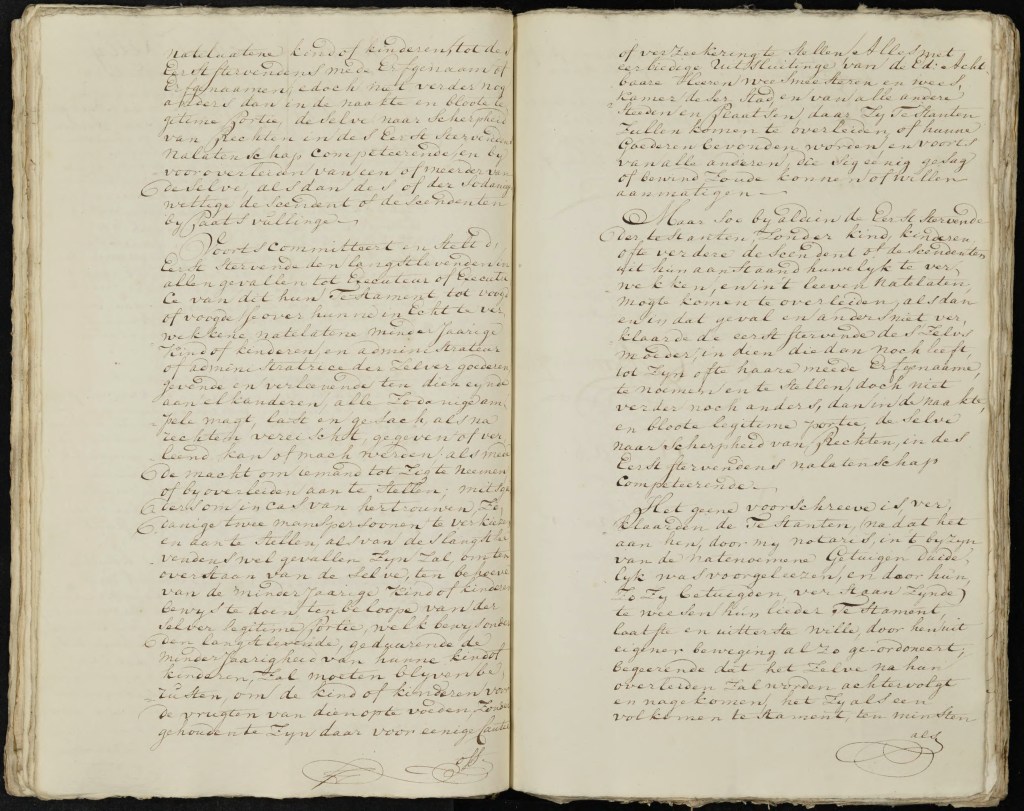 natelaatene kind of kinderen, tot des
Eerststervendens mede Erfgenaam of
Erfgenaamen, edoch niet verder nog
anders dan in de naakte en bloote le
gitime Portie, de selve naar scherpheid
van Rechten in des Eerst stervendens
Nalatenschap competeerende, en by
vooroverleiden van een of meerder van
deselve, als dan des of der sodanige
wettige descendent of descendenten
by Plaatsvullinge
Voorts committeert en steld de
Eerst stervende den langstlevenden in
allen gevallen tot Executeur of Executri
ce van dit hun Testament tot voogd
of voogdesse over hunne in Echt te ver
wekkene, natelatene minderjaarige
Kind of kinderen, en administrateur
of administratrice der Zelver goederen
gevende en verleenende ten dien eynde
aan elkanderen, alle Zodanige am
pele magt, last en gesach, als na
rechten vereischt, gegeven of ver
leend kan of mach werden, als mede
de macht om iemand tot Zig te neemen
of by overleiden aan te stellen; mitsga
ders om in cas van hertrouwen, Zo
danige twee manspersoonen te verkiezen
en aan te stellen, als van des langstle
vendens wel gevallen Zyn Zal, om ten
overstaan van de selve, ten behoeve
van de minderjaarige Kind of kinderen
bewys te doen ten beloope van der
selver legitime Portie, welk bewys onder
den langstlevende, geduurende de
minderjaarigheid van hunne kind of
kinderen, Zal moeten blyven be
rusten, om de kind of kinderen voor
de vrugten van dien op te voeden, Zonder
gehouden te Zyn daar voor eenige Cautie
of
of verzeekering te stellen, Alles met
eerbiedige Uitsluitinge van de Ed: Acht
baare Heeren weesmeesteren en wees
kamer deser stad, en van alle andere
steeden en Plaatsen, daar Zy Testanten
Zullen komen te overleiden, of hunne
Goederen bevonden worden, en voorts
van alle anderen, die sig eenig gesag
of bewind Zoude konnen of willen
aanmatigen
Maar soo by aldien de Eerst stervende
der testanten, Zonder kind, kinderen
ofte verdere descendent of descendenten
uit hun aanstaand huwelyk te ver
wekken, en in 't leeven natelaten,
mogte komen te overleiden, als dan
en in dat geval en anders niet ver
klaarde de eerst stervende des Zelvs
moeder, in dien die dan noch leeft,
tot Zyn ofte haare meede Erfgenaame
te noemen en te stellen, doch niet
verder noch anders, dan in de naakte
en bloote legitime portie, de selve
naar scherpheid van Rechten, in des
Eerst stervendens nalatenschap
Competeerende
Het geene voorschreeve is, ver
klaarden de Testanten, na dat het
aan hen, door my notaris, in 't byzyn
van de natenoemene Getuigen duide
lyk was voorgeleezen, en door hun,
Zo Zy betuigden, verstaan Zynde
te weesen hun lieder Testament,
laatste en uitterste wille, door hen uit
eigener beweging alzo ge-ordoneert;
begeerende dat het Zelve na hun
overleiden Zal worden achtervolgt
en nagekomen, het Zy als een
volkomen testament, ten minsten
als